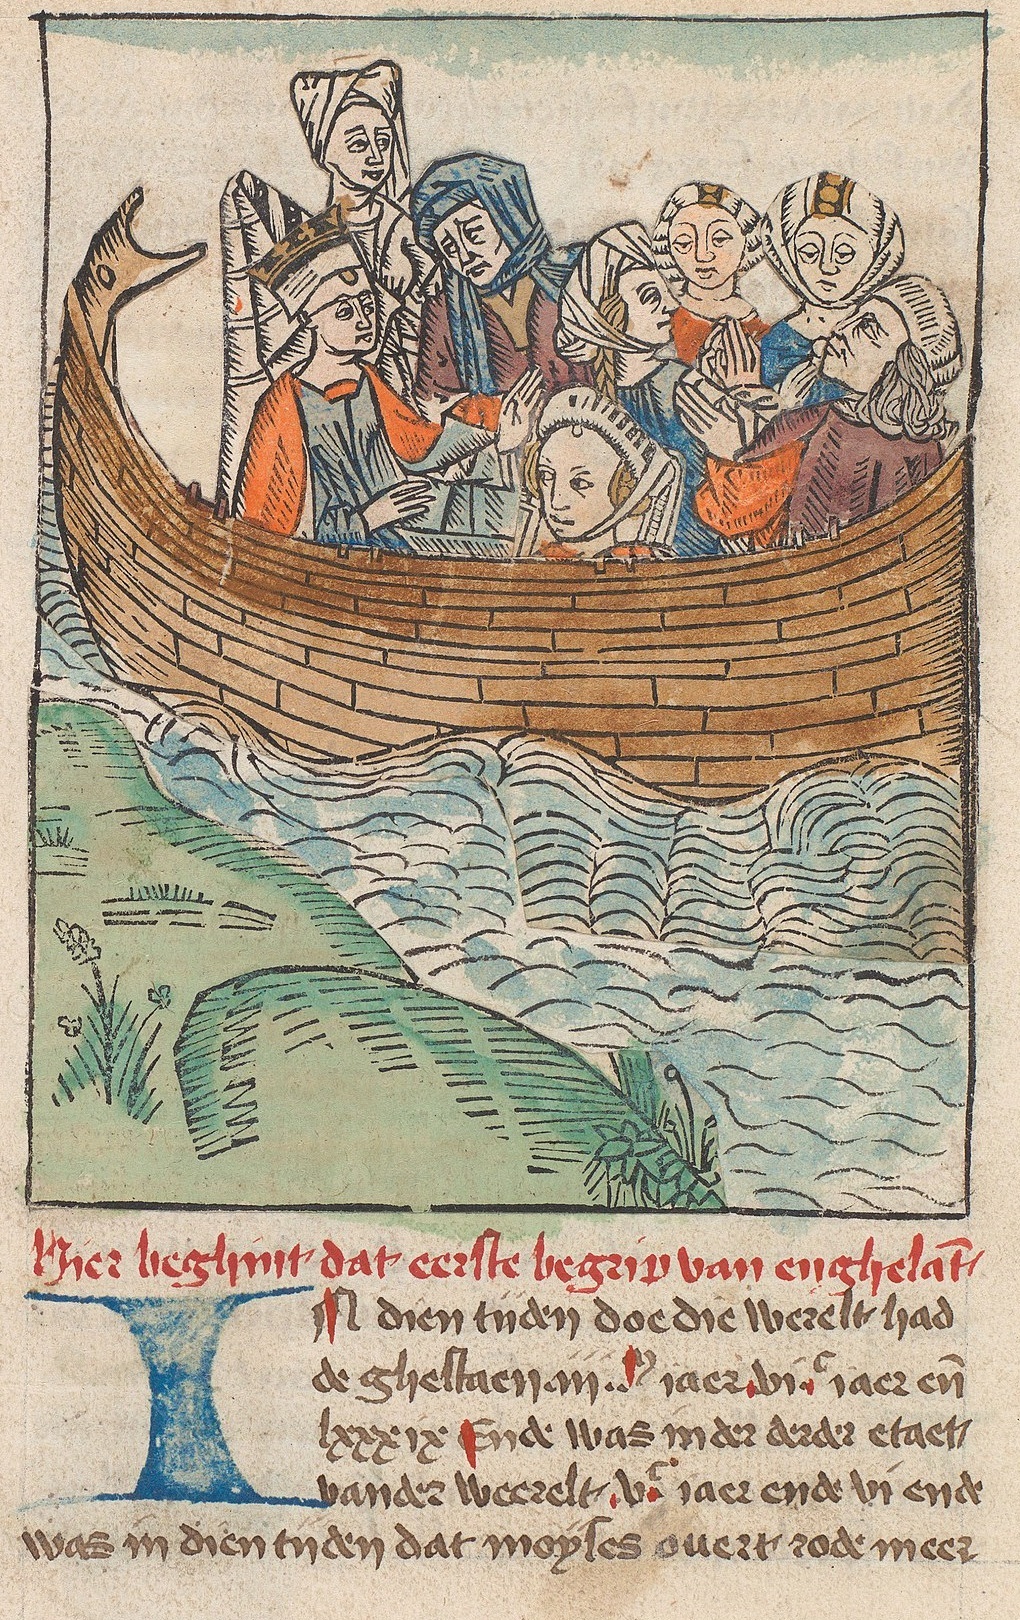 Hier beghint dat eerste begrip van enghelāt
IN dien tijden doe die werelt had
de ghestaen .iij.m iaer .vi.c iaer eñ
lxxxix Ende was in der derder etaet
vander weerelt .v.c iaer ende vi ende
was in dien tijden dat moyses ouert rode meer